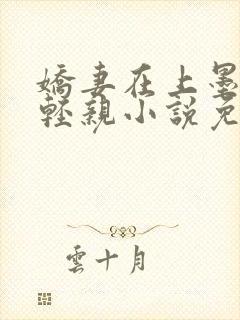 嬌妻在上墨
輕親小說免
雲十月